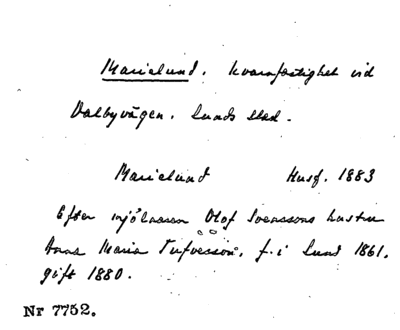 Marielund. kvarnfastighet vid
Dalbyvägen. Lunds stad.
Marielund Husf. 1883
Efter mjölnaren Olof Svenssons hustru
Anna Maria Tufvesson, f. i Lund 1861,
gift 1880.
Nr 7752.